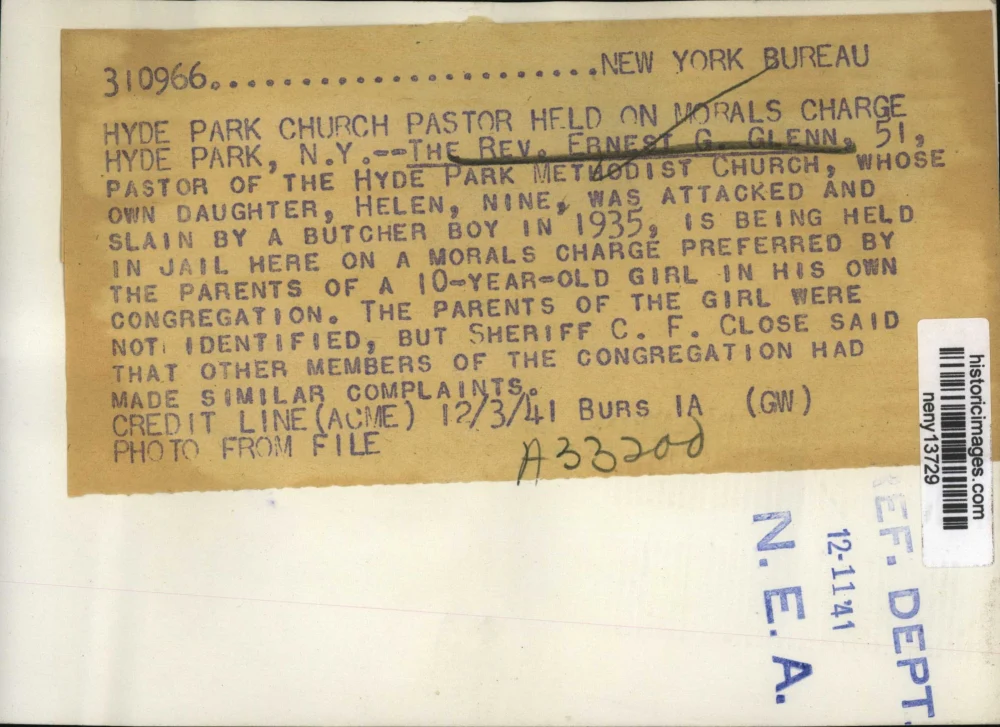 310966..........................NEW YORK BUREAU
HYDE PARK CHURCH PASTOR HELD ON MORALS CHARGE
HYDE PARK, N.Y.--THE REV. ERNEST G. GLENN, 51,
PASTOR OF THE HYDE PARK METHODIST CHURCH, WHOSE
OWN DAUGHTER, HELEN, NINE, WAS ATTACKED AND
SLAIN BY A BUTCHER BOY IN 1935, IS BEING HELD
IN JAIL HERE ON A MORALS CHARGE PREFERRED BY
THE PARENTS OF A 10-YEAR-OLD GIRL IN HIS OWN
CONGREGATION. THE PARENTS OF THE GIRL WERE
NOT IDENTIFIED, BUT SHERIFF C. F. CLOSE SAID
THAT OTHER MEMBERS OF THE CONGREGATION HAD
MADE SIMILAR COMPLAINTS.
CREDIT LINE(ACME) 12/3/41 BURS IA (GW)
PHOTO FROM FILE
A33200
historicimages.com
neny13729
REF. DEPT.
12-11'41
N.E.A.